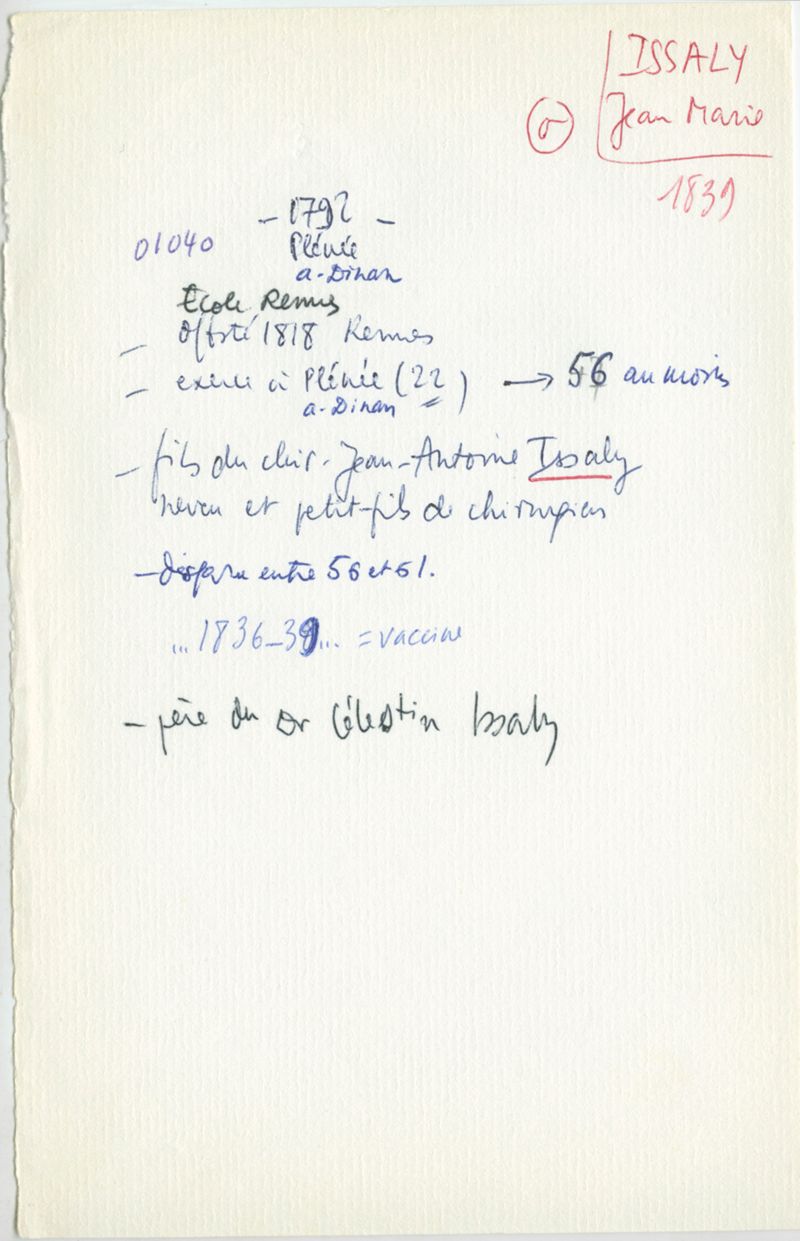 ISSALY
Jean Marie
1839
01040
- 1792 -
Plénée
a-Dinan
Ecole Rennes
- Offsté 1818 Rennes
- exerce à Plénée (22) → 56 au moins
a-Dinan
- fils du chir. Jean-Antoine Issaly
neveu et petit-fils de chirurgiens
- disparu entre 56 et 61.
... 1836-39... = vaccine
- père du Dr Célestin Issaly